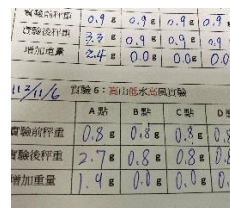 實驗前秤重 0.9 g 0.9 g 0.9 g 0.9
實驗後秤重 3.3 g 0.9 g 0.9 g 0.9
增加重量 2.4 g 0.0 g 0.0 g 0.0
112/11/6 實驗6：高山低水高風實驗
A點 B點 C點 D點
實驗前秤重 0.8 g 0.8 g 0.8 g 0.8
實驗後秤重 2.7 g 0.8 g 0.8 g 0.8
增加重量 1.9 g 0.0 g 0.0 g 0.